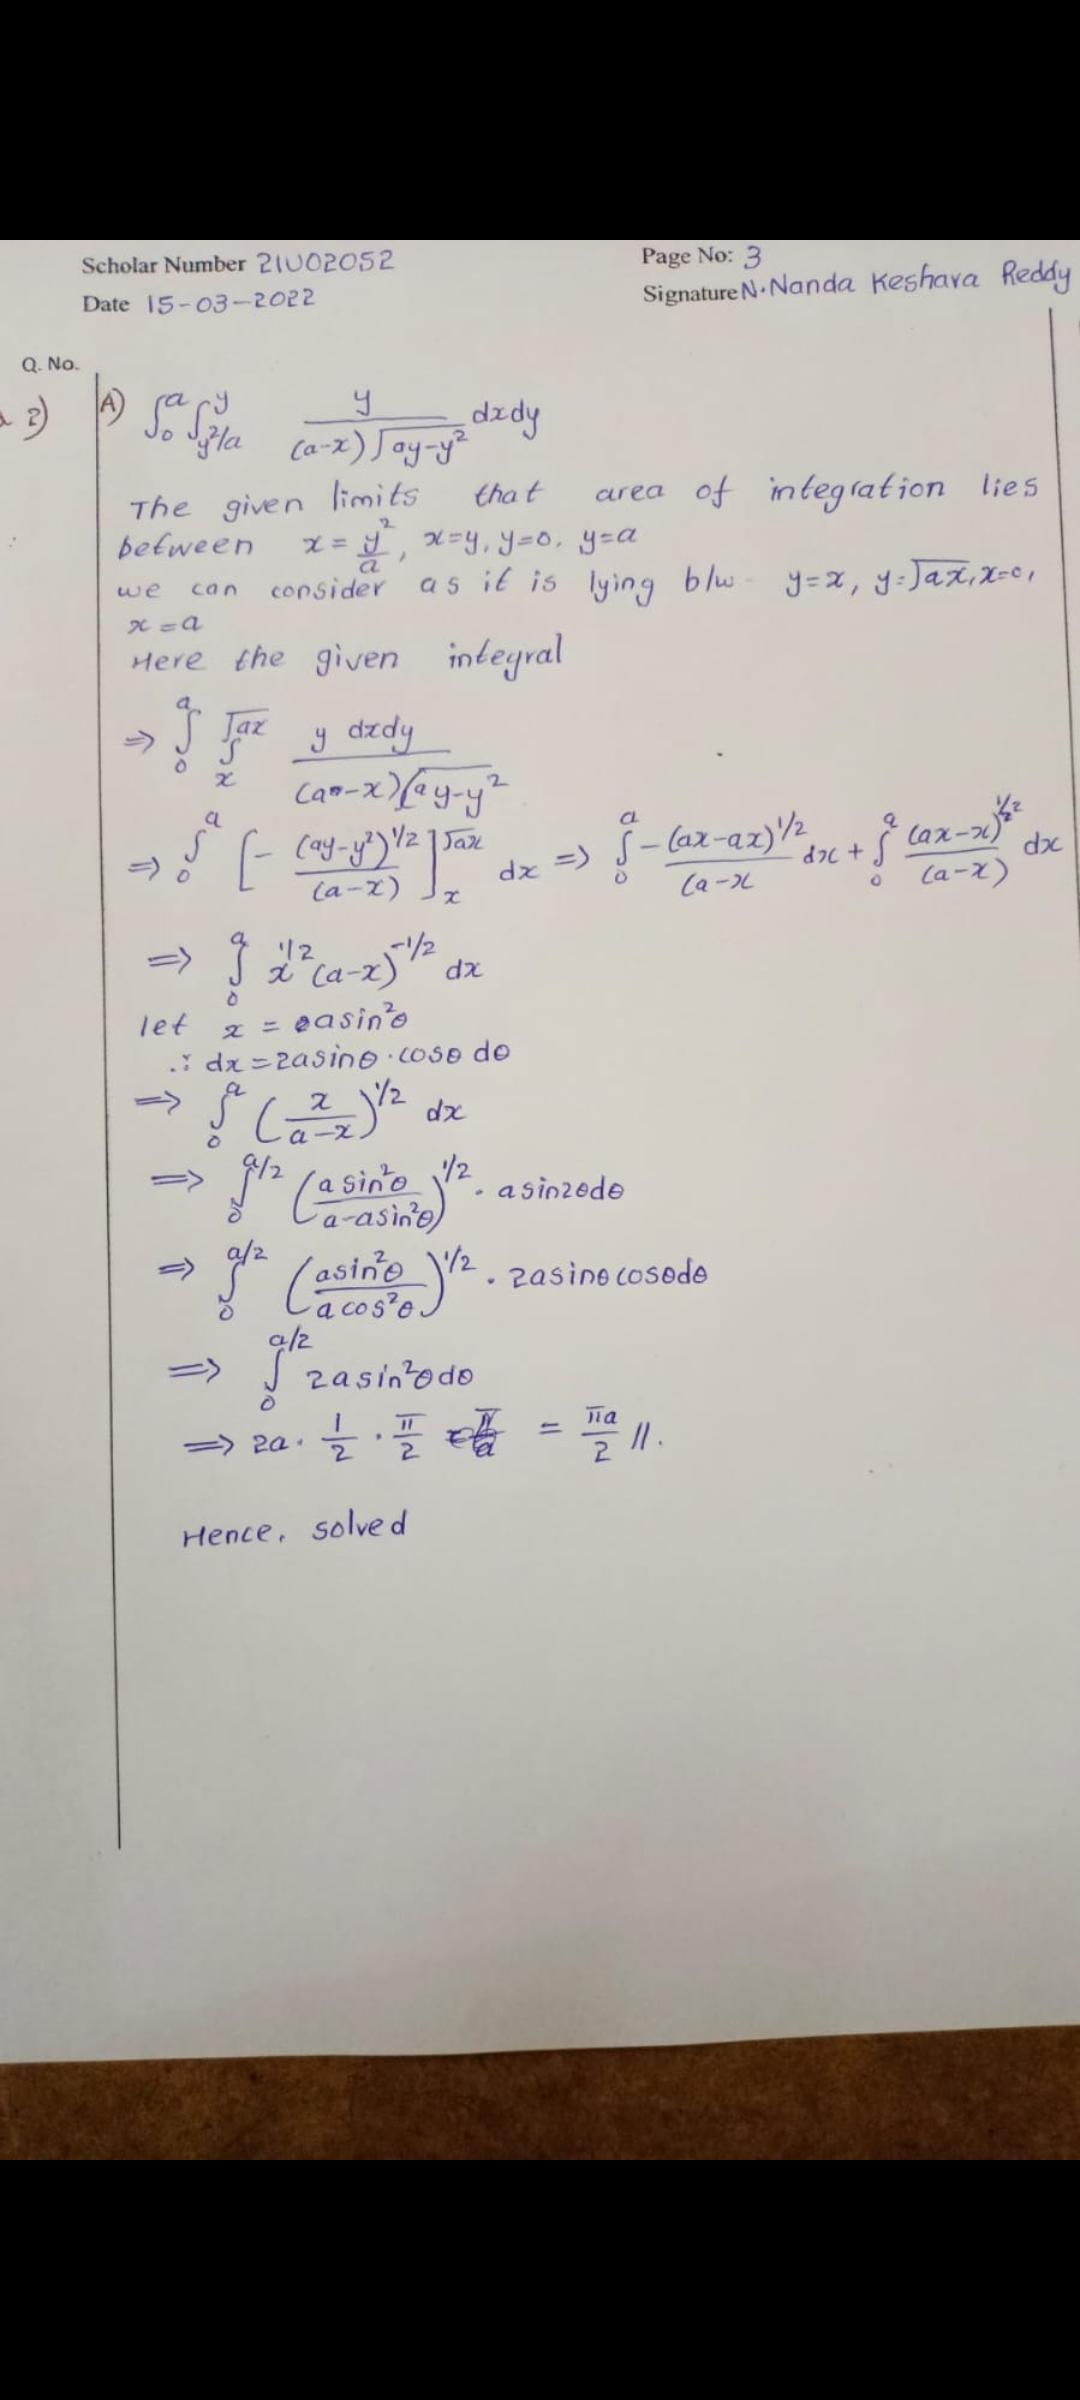 Scholar Number 21U02052
Page No: 3
Date 15-03-2022
Signature N.Nanda Keshava Reddy
Q. No.
2) A) ∫₀^a ∫_{y²/a}^y y/((a-x)√(ay-y²)) dxdy
The given limits that area of integration lies
between x = y²/a, x=y, y=0, y=a
we can consider as it is lying b/w y=x, y=√ax, x=0,
x=a
Here the given integral
⇒ ∫₀^a ∫_x^{√ax} y dxdy/((a-x)√(ay-y²))
⇒ ∫₀^a [- (ay-y²)^{1/2}/(a-x)]_x^{√ax} dx ⇒ ∫₀^a -(ax-ax)^{1/2}/(a-x dx + ∫₀^a (ax-x)^{1/2}/(a-x) dx
⇒ ∫₀^a x^{1/2}(a-x)^{-1/2} dx
let x = asin²θ
∴ dx = 2asinθ·cosθ dθ
⇒ ∫₀^a (x/(a-x))^{1/2} dx
⇒ ∫₀^{a/2} (asin²θ/(a-asin²θ))^{1/2} · asin2θdθ
⇒ ∫₀^{a/2} (asin²θ/(acos²θ))^{1/2} · 2asinθcosθdθ
⇒ ∫₀^{a/2} 2asin²θdθ
⇒ 2a · 1/2 · π/2 = πa/2 //.
Hence, solved